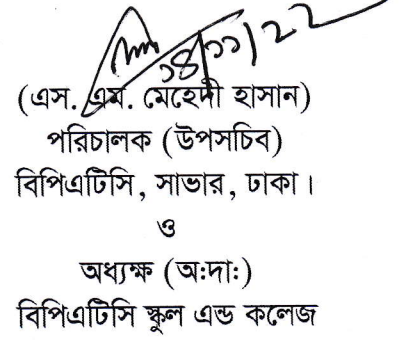 ১৪/১১/২২
(এস. এম. মেহেদী হাসান)
পরিচালক (উপসচিব)
বিপিএটিসি, সাভার, ঢাকা।
ও
অধ্যক্ষ (অ:দা:)
বিপিএটিসি স্কুল এন্ড কলেজ